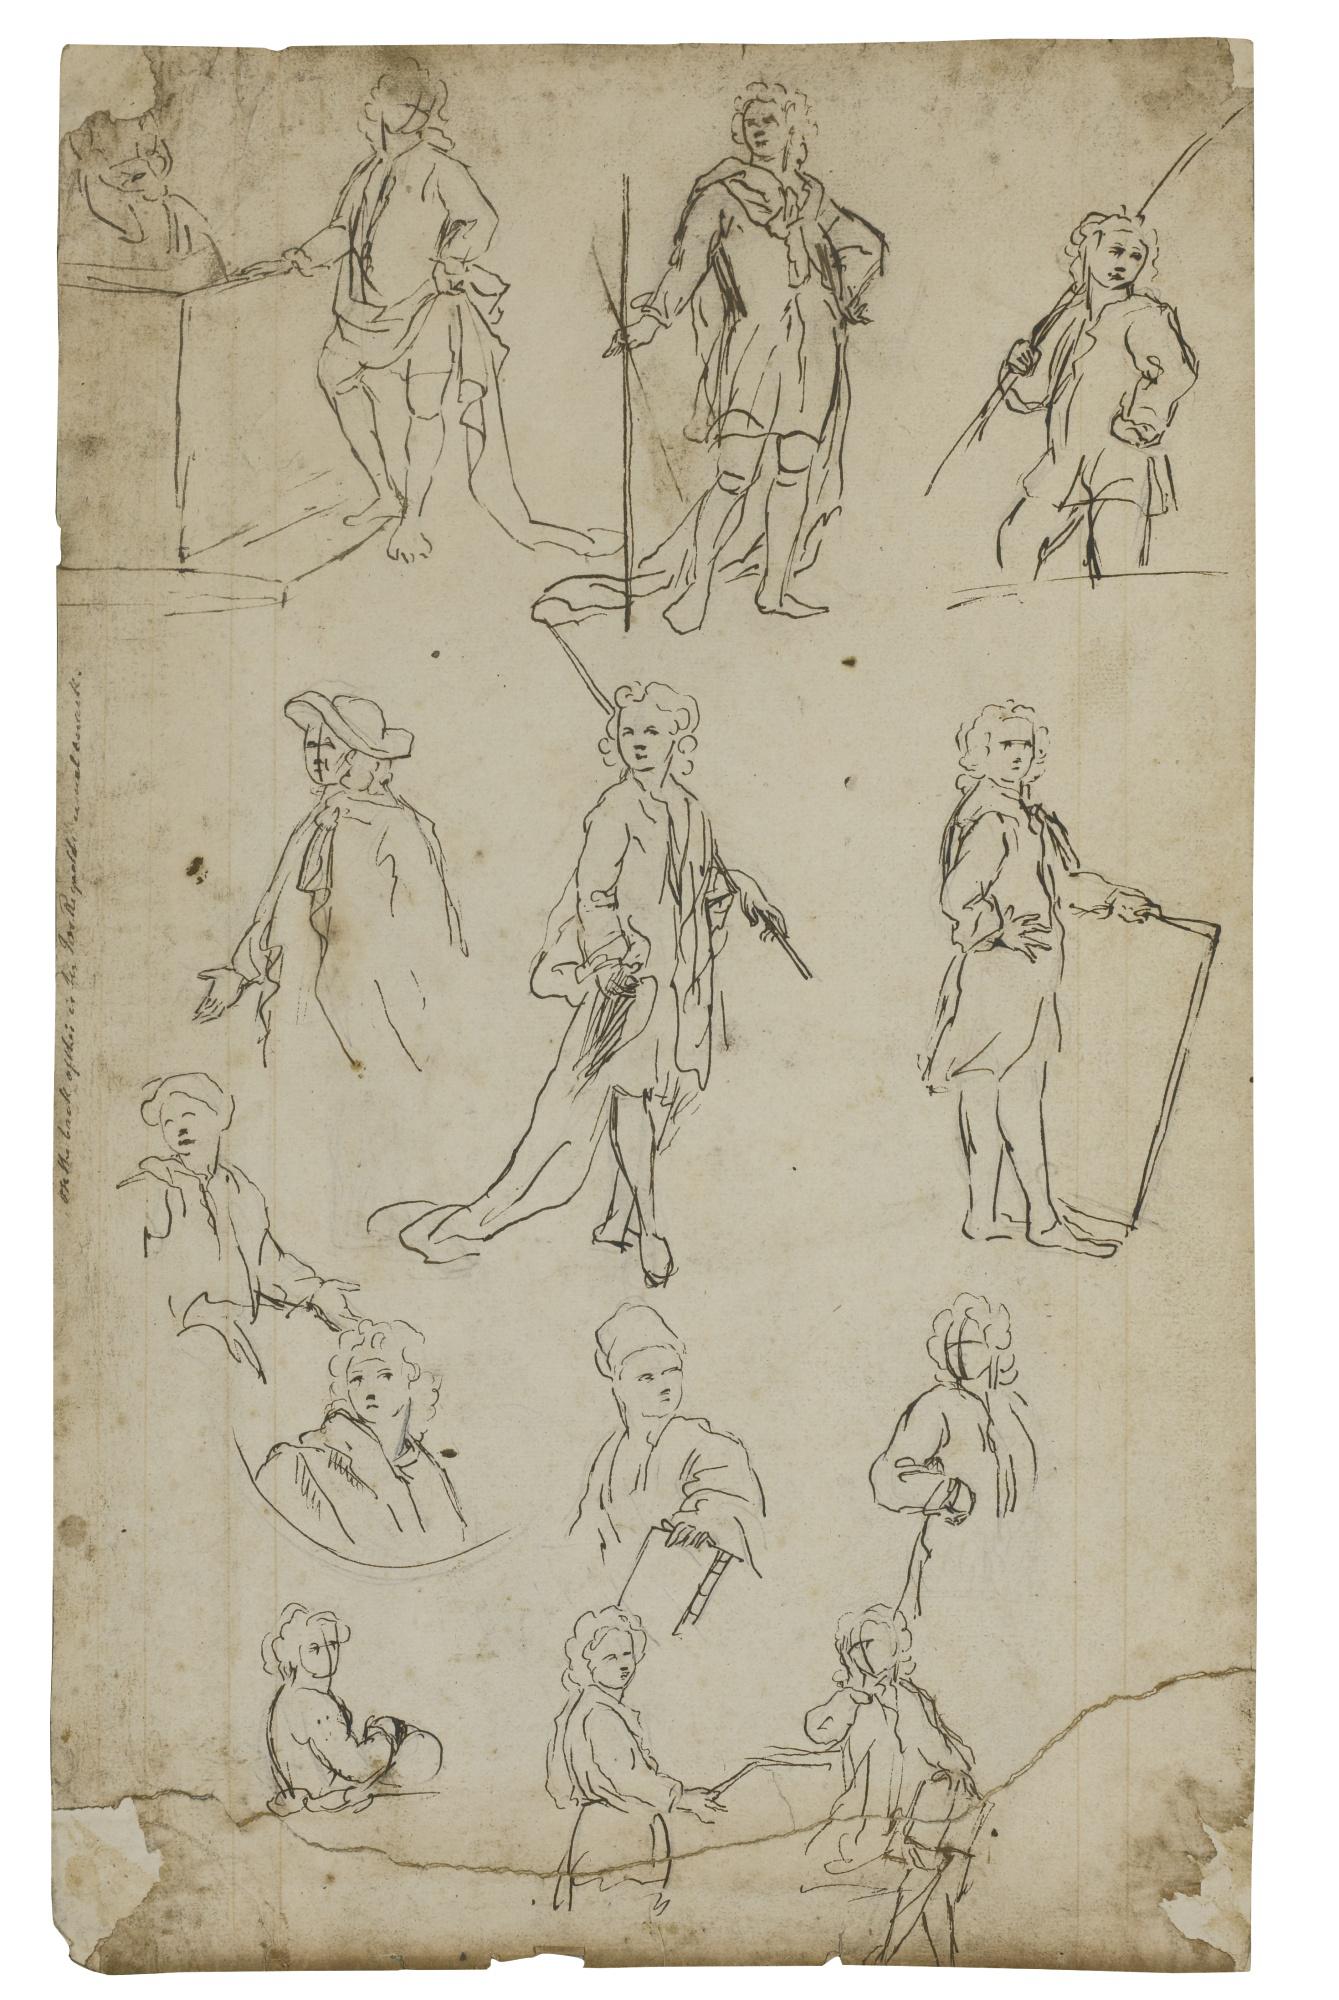 On the back of this is Sir Jos. Reynolds' usual mark.